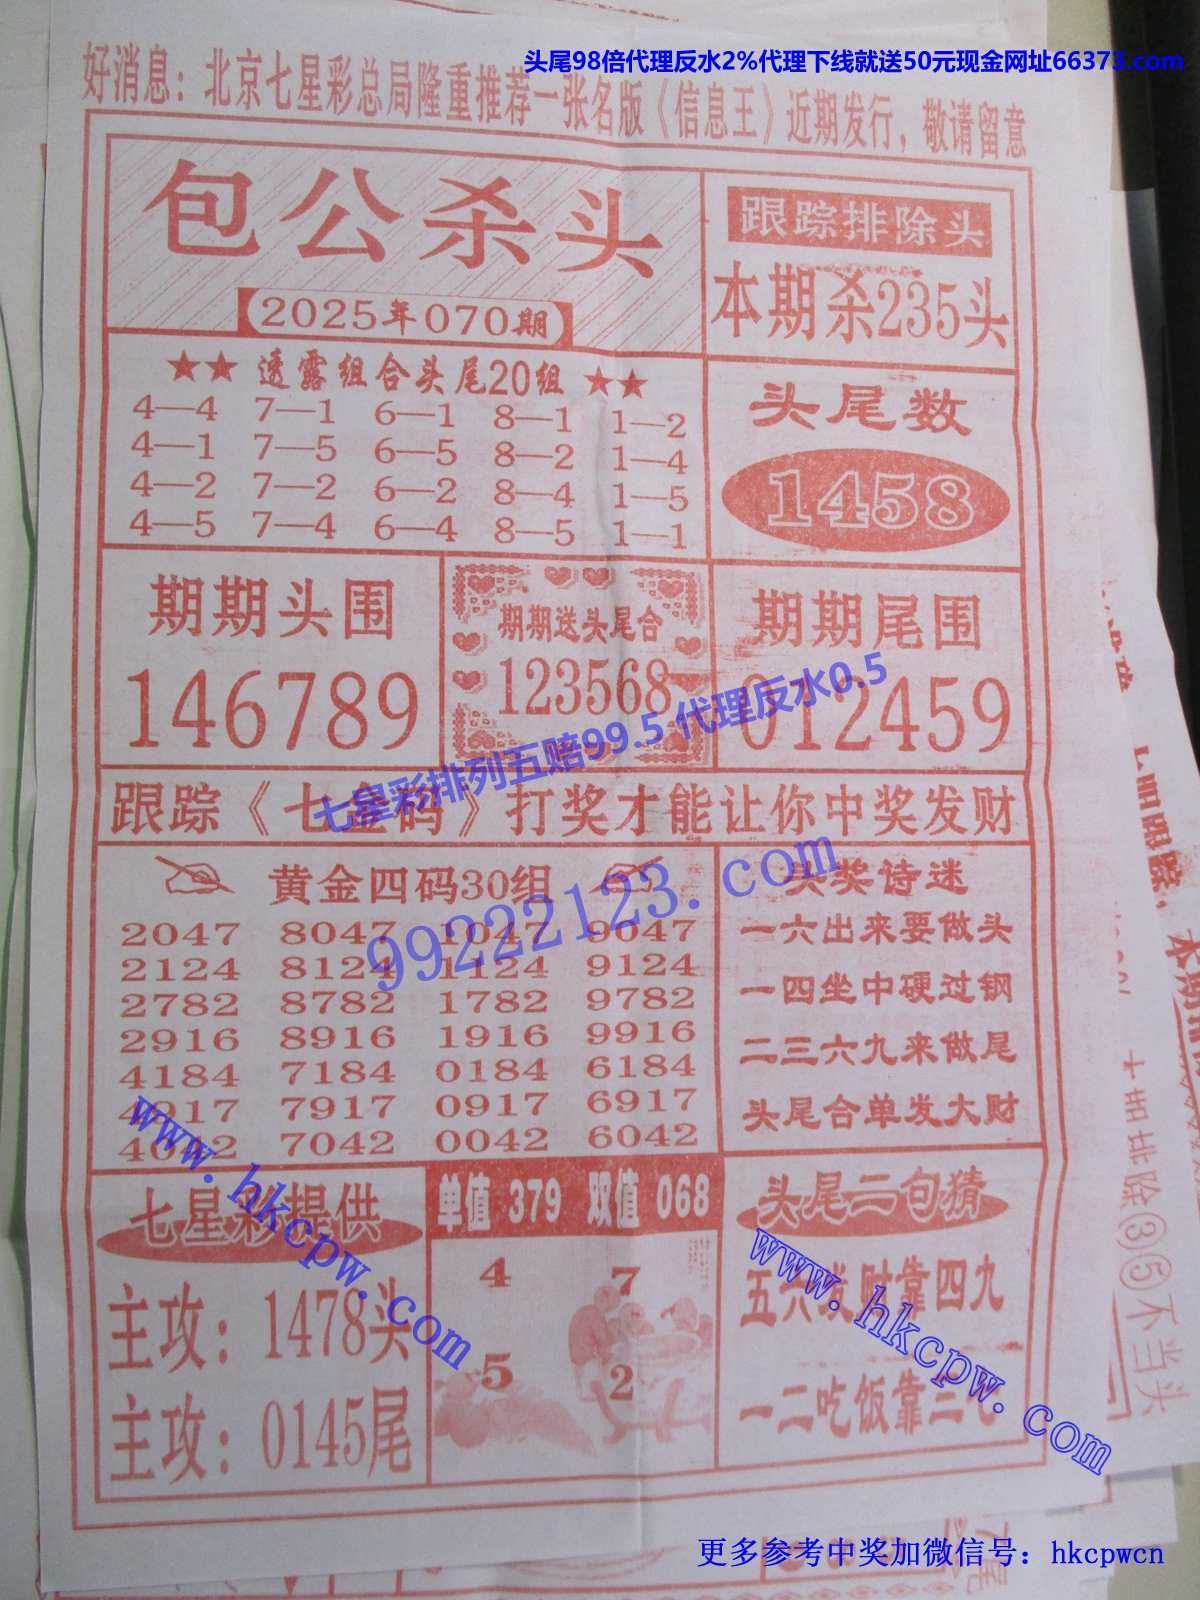 头尾98倍代理反水2%代理下线就送50元现金网址66373.com
好消息：北京七星彩总局隆重推荐一张名版《信息王》近期发行，敬请留意
包公杀头
2025年070期
跟踪排除头
本期杀235头
★★透露组合头尾20组★★
4—4 7—1 6—1 8—1 1—2
4—1 7—5 6—5 8—2 1—4
4—2 7—2 6—2 8—4 1—5
4—5 7—4 6—4 8—5 1—1
头尾数
1458
期期头围
146789
期期送头尾合
123568
期期尾围
012459
七星彩排列五赔99.5 代理反水0.5
跟踪《七金码》打奖才能让你中奖发财
黄金四码30组
2047 8047 1047 9047
2124 8124 1124 9124
2782 8782 1782 9782
2916 8916 1916 9916
4184 7184 0184 6184
4917 7917 0917 6917
4042 7042 0042 6042
99222123.com
头奖诗迷
一六出来要做头
一四坐中硬过钢
二三六九来做尾
头尾合单发大财
七星彩提供
主攻：1478头
主攻：0145尾
www.hkcpw.com
单值 379 双值 068
4 7
5 2
头尾二句猜
五六发财靠四九
一二吃饭靠三七
www.hkcpw.com
③⑤不当头
更多参考中奖加微信号：hkcpwcn